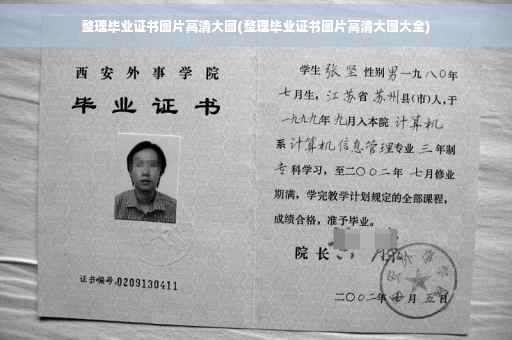 整理毕业证书图片高清大图(整理毕业证书图片高清大图大全)
西安外事学院
毕业证书
证书编号:0209130411
学生 张坚 性别 男 一九八〇年
七月生,江苏省 苏州县(市)人,于
一九九九年 九月入本院 计算机
系 计算机信息管理专业 三 年制
专科学习,至二〇〇二年 七月修业
期满,学完教学计划规定的全部课程,
成绩合格,准予毕业。
院长
二〇〇二年 月 五日